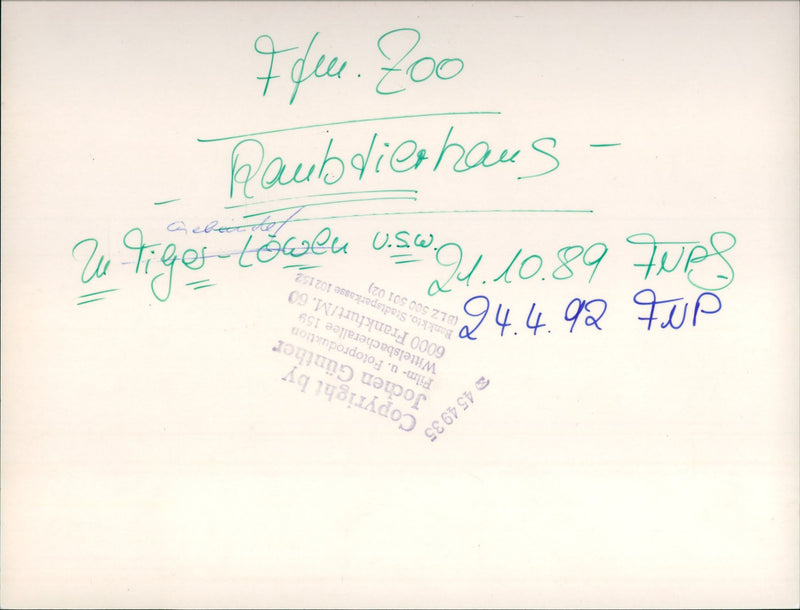 Ffm. Zoo
- Raubtierhaus -
Zu Tiger Löwen u.s.w.
21.10.89 FNP
24.4.92 FNP
Copyright by
Jochen Günther
Film- u. Fotoproduktion
Wittelsbacherallee 159
6000 Frankfurt/M. 60
Bankkto. Stadtsparkasse 102152
(BLZ 500 501 02)
☎ 454935